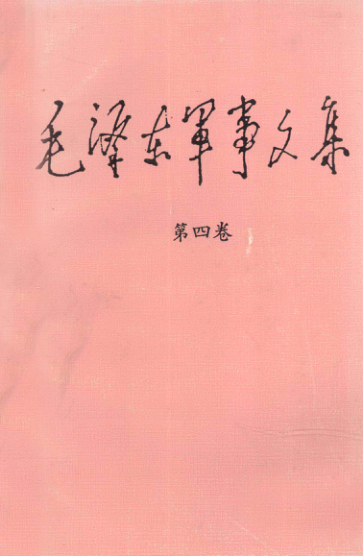 毛泽东军事文集
第四卷